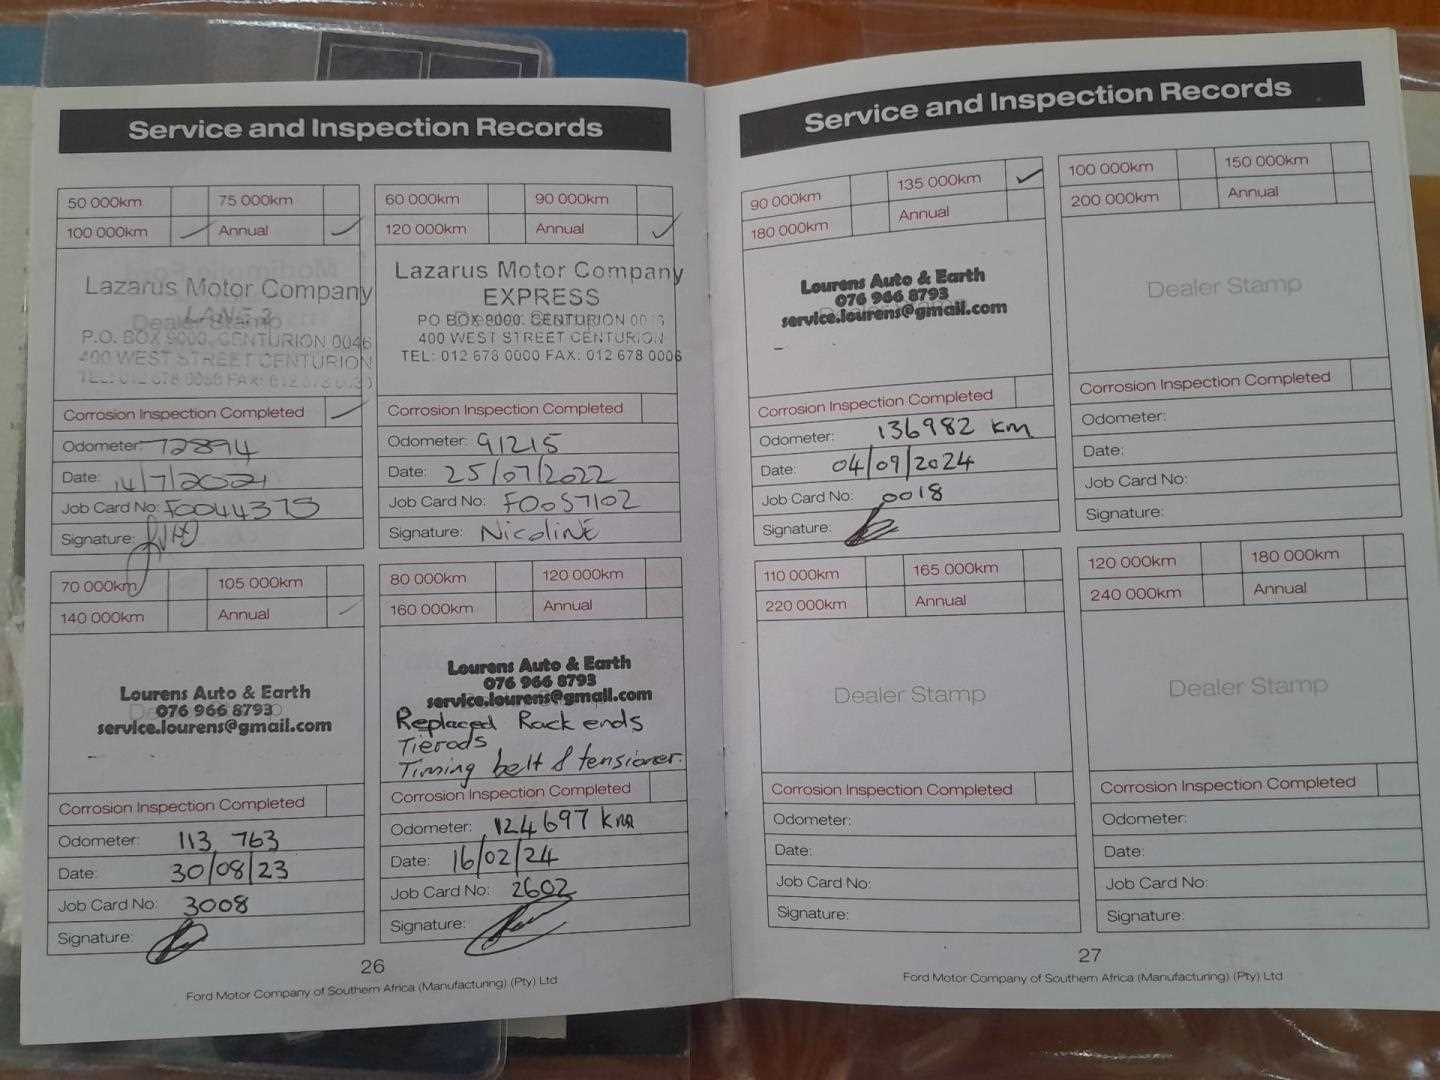 Service and Inspection Records
50 000km 75 000km
100 000km Annual
Lazarus Motor Company
LANE 3
Dealer Stamp
P.O. BOX 9000, CENTURION 0046
400 WEST STREET CENTURION
Corrosion Inspection Completed
Odometer: 72894
Date: 14/7/2021
Job Card No: F0044375
Signature:
60 000km 90 000km
120 000km Annual
Lazarus Motor Company
EXPRESS
PO BOX 9000. CENTURION
400 WEST STREET CENTURION
TEL: 012 678 0000 FAX: 012 678 0006
Corrosion Inspection Completed
Odometer: 91215
Date: 25/07/2022
Job Card No: F0057102
Signature: NicolinE
70 000km 105 000km
140 000km Annual
Lourens Auto & Earth
076 966 8793
service.lourens@gmail.com
Corrosion Inspection Completed
Odometer: 113 763
Date: 30/08/23
Job Card No: 3008
Signature:
80 000km 120 000km
160 000km Annual
Lourens Auto & Earth
076 966 8793
service.lourens@gmail.com
Replaced Rack ends
Tierods
Timing belt & tensioner.
Corrosion Inspection Completed
Odometer: 124697 km
Date: 16/02/24
Job Card No: 2602
Signature:
26
Ford Motor Company of Southern Africa (Manufacturing) (Pty) Ltd
Service and Inspection Records
90 000km 135 000km
180 000km Annual
Lourens Auto & Earth
076 966 8793
service.lourens@gmail.com
Corrosion Inspection Completed
Odometer: 136982 km
Date: 04/09/2024
Job Card No: 0018
Signature:
100 000km 150 000km
200 000km Annual
Dealer Stamp
Corrosion Inspection Completed
Odometer:
Date:
Job Card No:
Signature:
110 000km 165 000km
220 000km Annual
Dealer Stamp
Corrosion Inspection Completed
Odometer:
Date:
Job Card No:
Signature:
120 000km 180 000km
240 000km Annual
Dealer Stamp
Corrosion Inspection Completed
Odometer:
Date:
Job Card No:
Signature:
27
Ford Motor Company of Southern Africa (Manufacturing) (Pty) Ltd